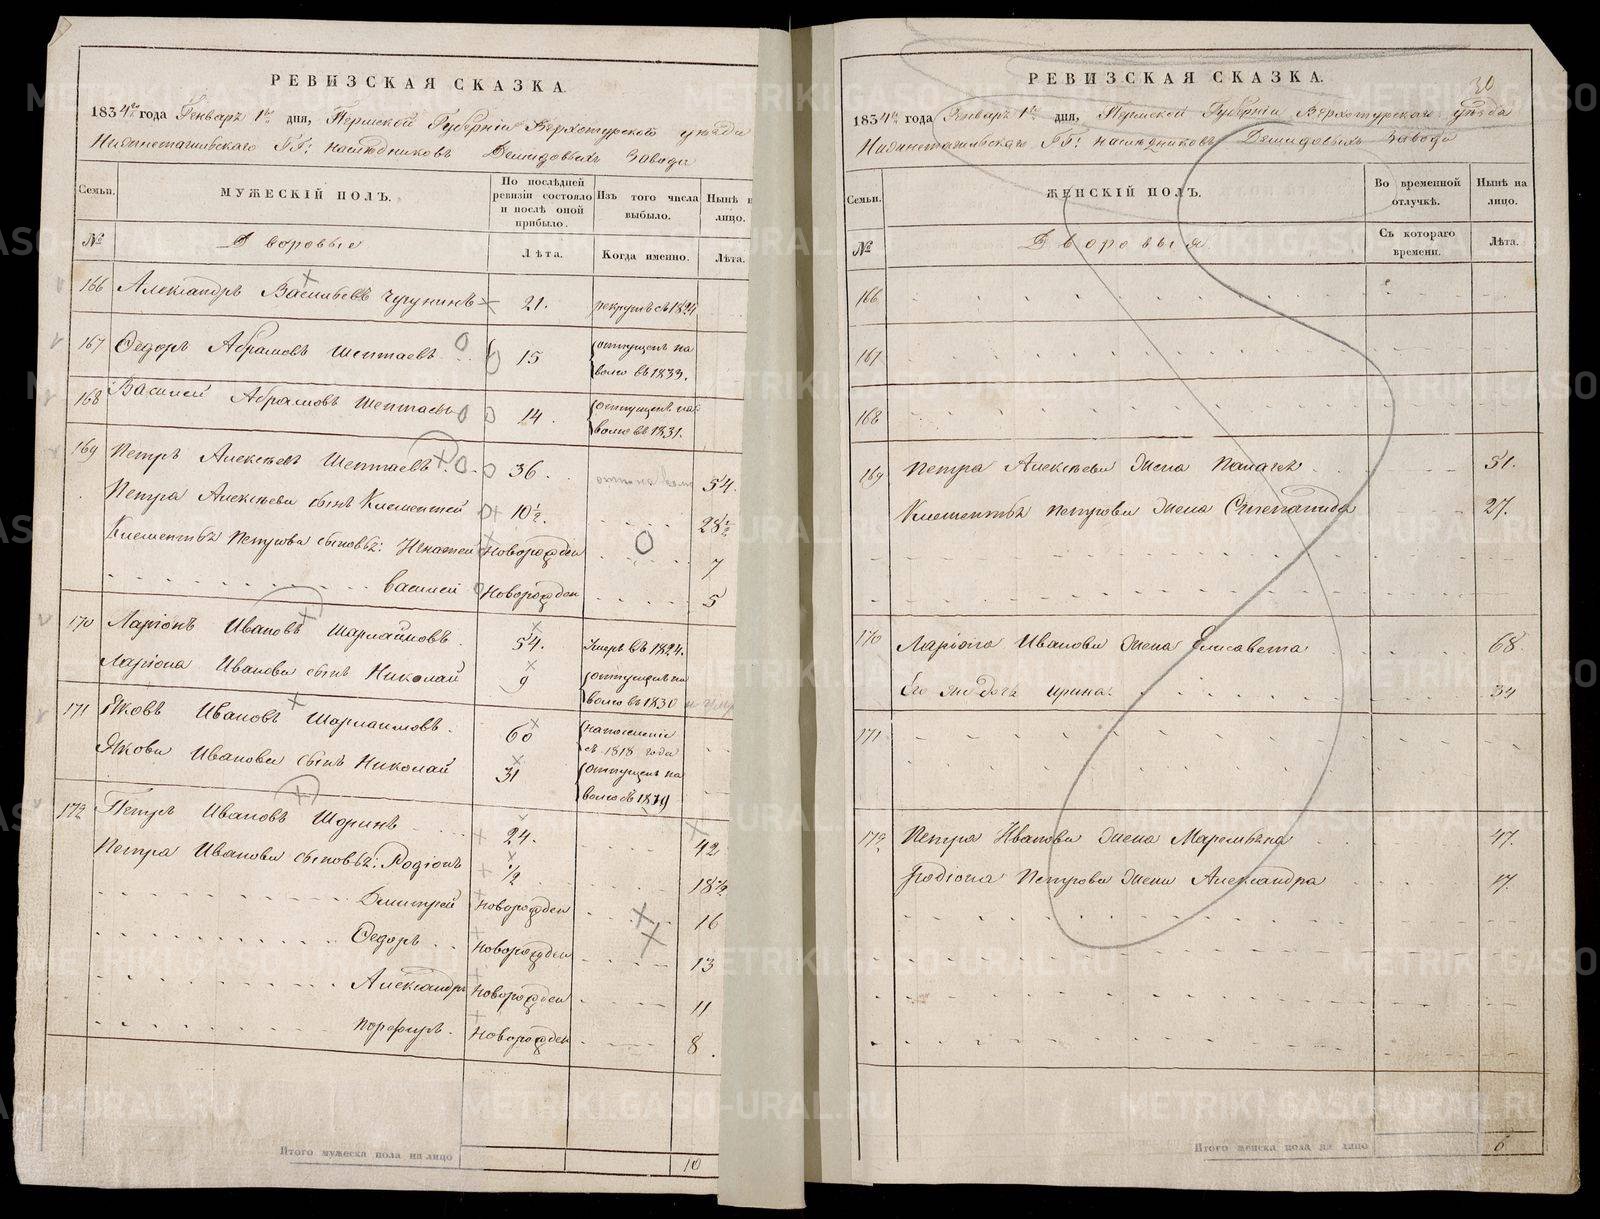 РЕВИЗСКАЯ СКАЗКА.
1834го года Генваря 1го дня, Пермской Губерніи Верхотурскаго уѣзда
Нижнетагильскаго ГГ: наслѣдниковъ Демидовыхъ завода
Семьи.
МУЖЕСКІЙ ПОЛЪ.
По послѣдней ревизіи состояло и послѣ оной прибыло.
Изъ того числа выбыло.
Нынѣ на лицо.
№
Дворовые
Лѣта.
Когда именно.
Лѣта.
166 Александръ Васильевъ Чугунинъ 21. рекрутъ съ 1824
167 Федоръ Абрамовъ Шептаевъ 15 отпущенъ на волю въ 1833.
168 Василей Абрамовъ Шептаевъ 14 отпущенъ на волю въ 1831.
169 Петръ Алексѣевъ Шептаевъ 36. 54.
Петра Алексѣева сынъ Клементей 10½. 28½
Клементья Петрова сыновья: Игнатей Новорожден 7
Василей Новорожден 5
170 Ларіонъ Ивановъ 54. Умеръ въ 1824.
Ларіона Иванова сынъ Николай 9 отпущенъ на волю въ 1830
171 Яковъ Ивановъ 60 на поселеніе съ 1818 года
Якова Иванова сынъ Николай 31 отпущенъ на волю въ 1819
172 Петръ Ивановъ Шоринъ 24. 42
Петра Иванова сыновья: Родіонъ ½ 18½
Дмитрей Новорожден 16
Федоръ Новорожден 13
Александръ Новорожден 11
Порфиръ. Новорожден 8.
Итого мужеска пола на лицо 10
РЕВИЗСКАЯ СКАЗКА.
30
1834го года Генваря 1го дня, Пермской Губерніи Верхотурскаго уѣзда
Нижнетагильскаго ГГ: наслѣдниковъ Демидовыхъ завода
Семьи.
ЖЕНСКІЙ ПОЛЪ.
Во временной отлучкѣ.
Нынѣ на лицо.
№
Дворовыя
Съ котораго времени.
Лѣта.
166
167
168
169 Петра Алексѣева жена Палагея 51.
Клементья Петрова жена Степанида 27.
170 Ларіона Иванова жена Елисавета 68
Его же дочь Ирина. 34
171
172 Петра Иванова жена Маремьяна 47.
Родіона Петрова жена Александра 17.
Итого женска пола на лицо 6
METRIKI.GASO-URAL.RU